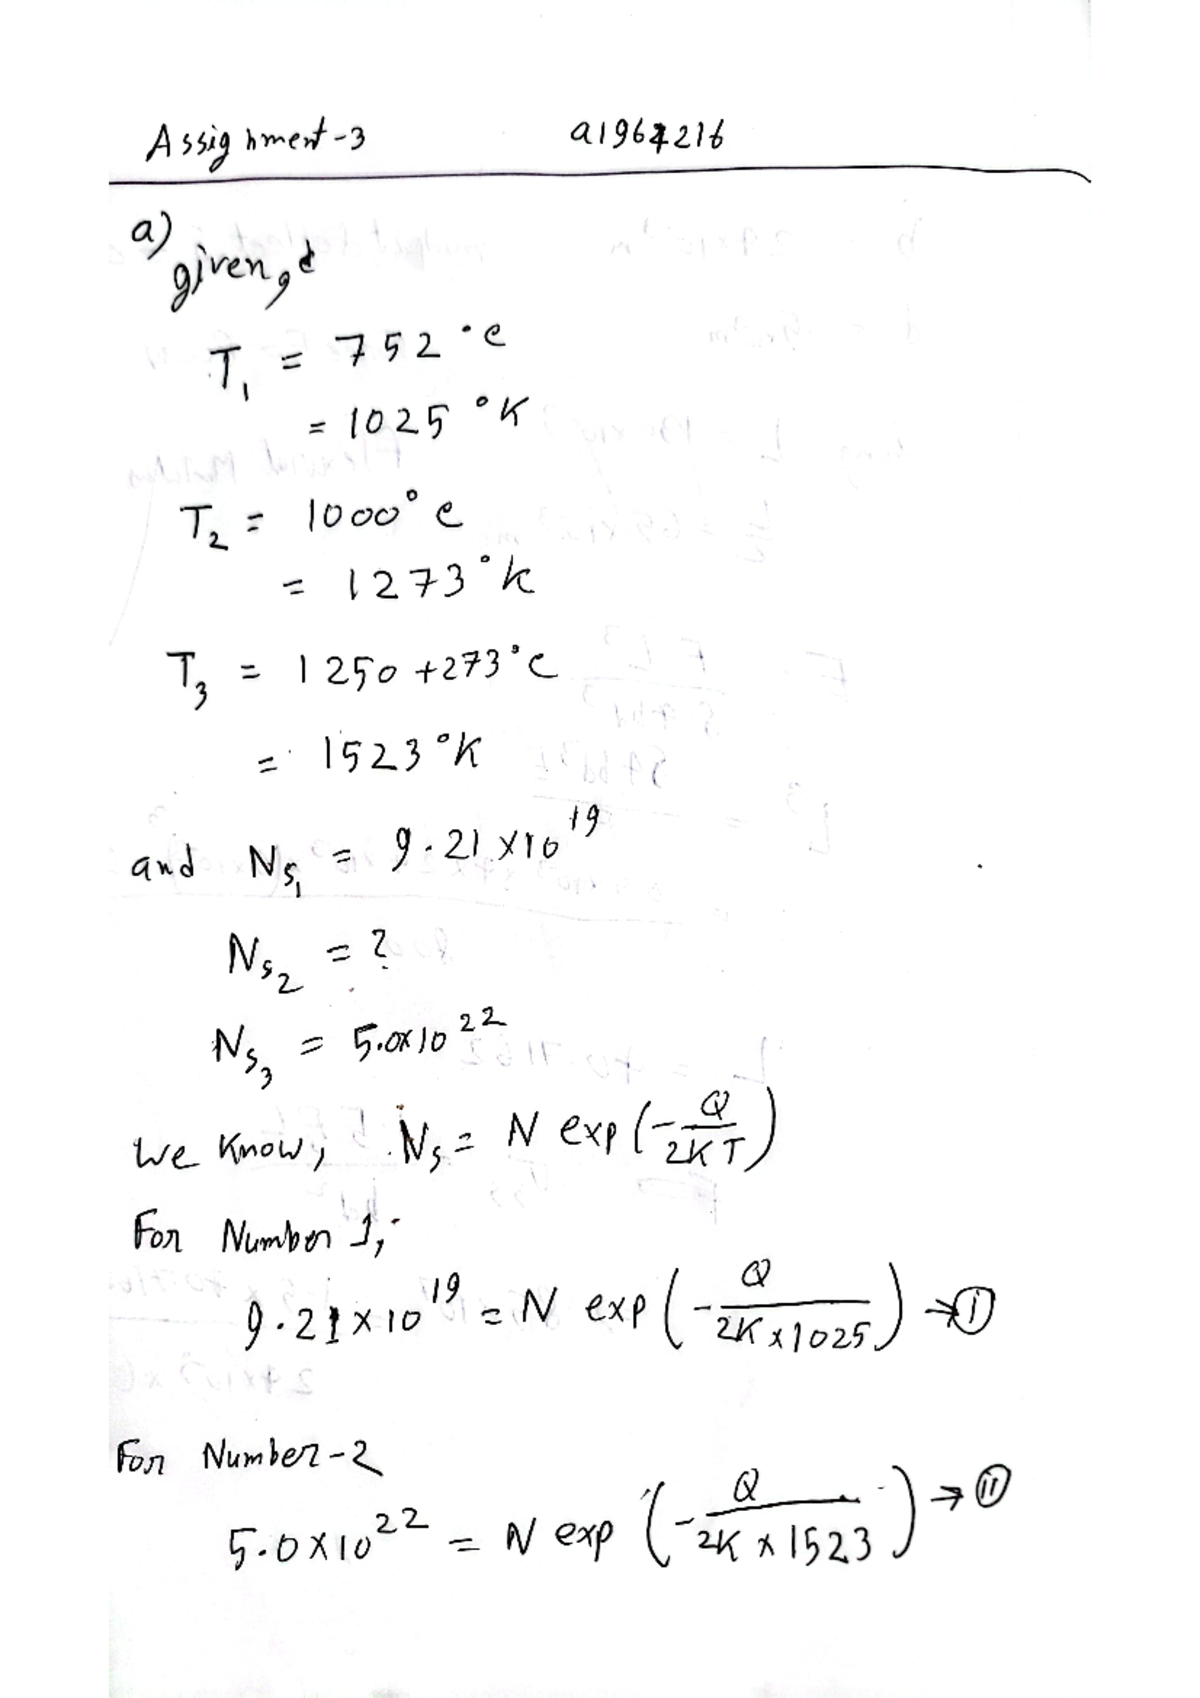 Assignment-3 a1964216
a)
given,
T₁ = 752°c
= 1025 °K
T₂ = 1000°c
= 1273°k
T₃ = 1250 +273°c
= 1523°K
and Ns₁ = 9.21 x10¹⁹
Ns₂ = ?
Ns₃ = 5.0x10²²
We Know, Ns = N exp(-Q/2KT)
For Number 1,
9.21x10¹⁹ = N exp(-Q/2Kx1025) → (I)
For Number-2
5.0x10²² = N exp(-Q/2K x 1523) → (II)